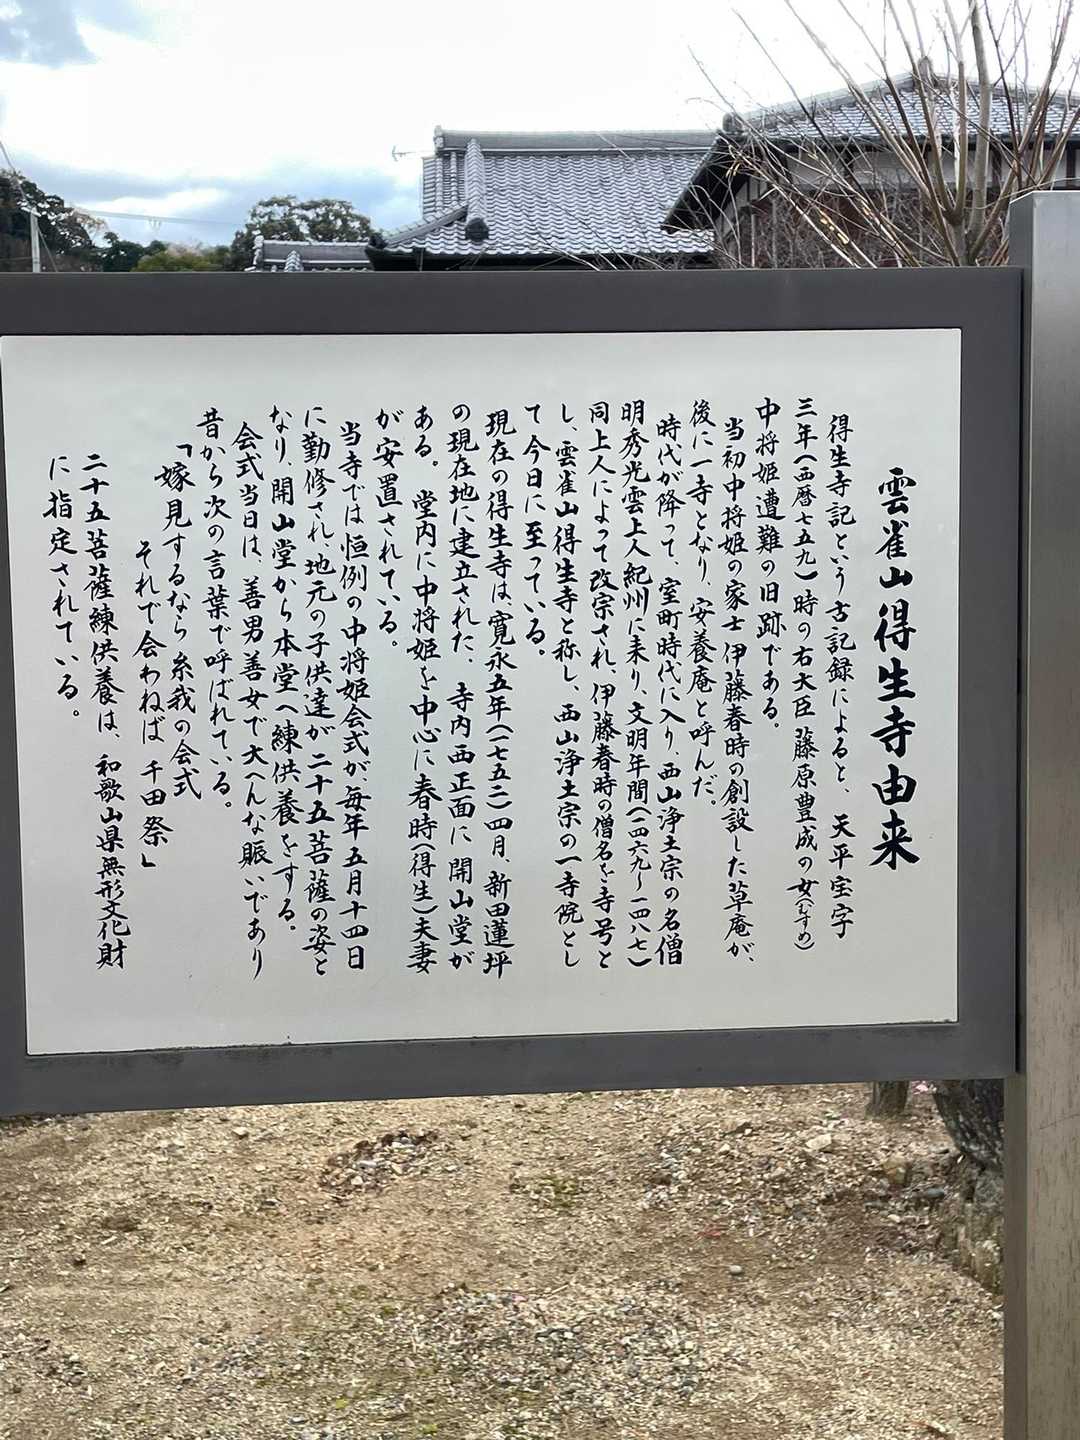 雲雀山得生寺由来
得生寺記という古記録によると、天平宝字
三年(西暦七五九)時の右大臣藤原豊成の女(むすめ)
中将姫遭難の旧跡である。
当初中将姫の家士伊藤春時の創設した草庵が、
後に一寺となり、安養庵と呼んだ。
時代が降って、室町時代に入り、西山浄土宗の名僧
明秀光雲上人紀州に来り、文明年間(一四六九〜一四八七)
同上人によって改宗され、伊藤春時の僧名を寺号と
し、雲雀山得生寺と称し、西山浄土宗の一寺院とし
て今日に至っている。
現在の得生寺は、寛永五年(一七五二)四月、新田蓮坪
の現在地に建立された、寺内西正面に開山堂が
ある。堂内に中将姫を中心に春時(得生)夫妻
が安置されている。
当寺では恒例の中将姫会式が、毎年五月十四日
に勤修され、地元の子供達が二十五菩薩の姿と
なり、開山堂から本堂へ練供養をする。
会式当日は、善男善女で大へんな賑いであり
昔から次の言葉で呼ばれている。
「嫁見するなら糸我の会式
それで会わねば千田祭」
二十五菩薩練供養は、和歌山県無形文化財
に指定されている。